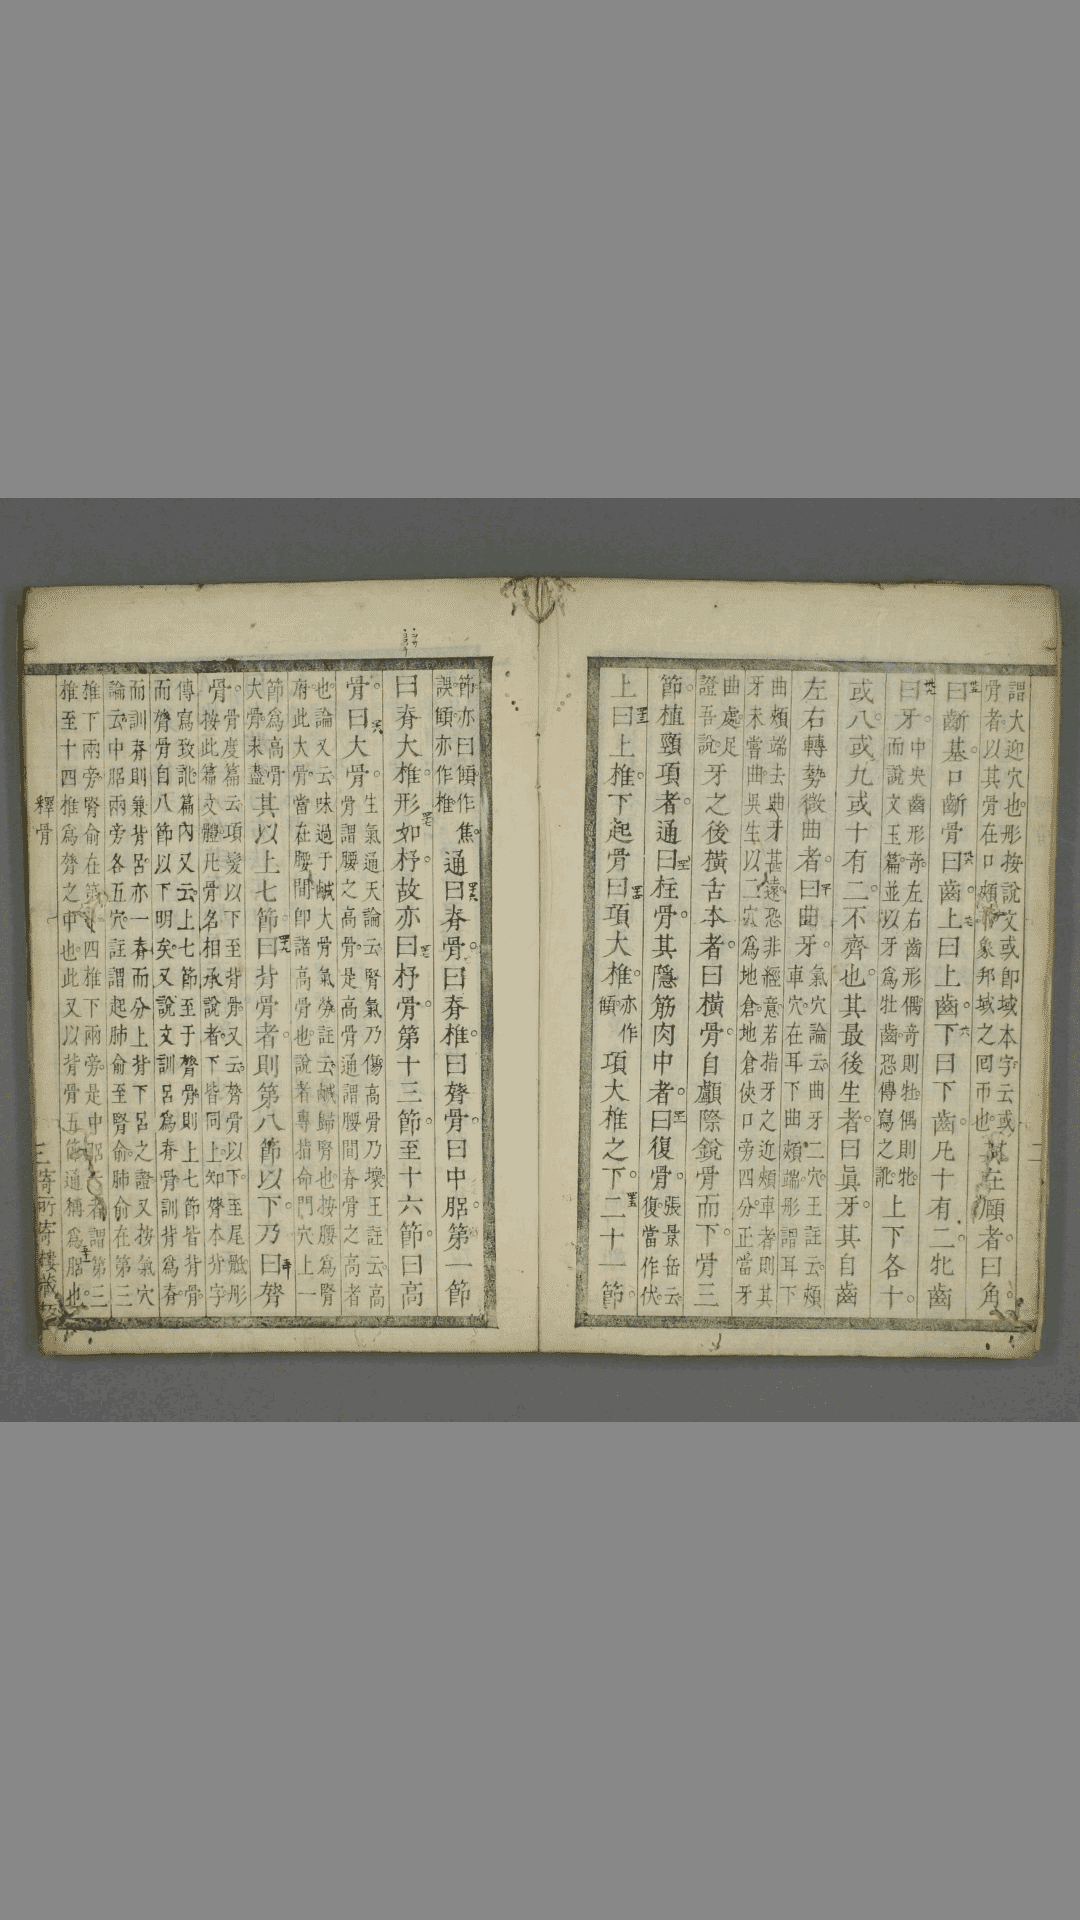 謂大迎穴也形按説文或卽域本字云或
骨者以其骨在口頰象邦域之囘帀也其在頤者曰角
曰齗基口齗骨曰齒上曰上齒下曰下齒凡十有二牝齒
曰牙中央齒形奇左右齒形偶奇則牡偶則牝
而説文玉篇並以牙爲牡齒恐傳寫之訛上下各十
或八或九或十有二不齊也其最後生者曰眞牙其自齒
左右轉勢微曲者曰曲牙氣穴論云曲牙二穴王註云頰
車穴在耳下曲頰端形謂耳下
曲頰端去曲牙甚遠恐非經意若指牙之近頰車者則其
牙未嘗曲吳生以二穴爲地倉地倉俠口旁四分正當牙
曲處足
證吾説牙之後橫舌本者曰橫骨自顱際銳骨而下骨三
節植頸項者通曰柱骨其隱筋肉中者曰復骨張景岳云
復當作伏
上曰上椎下起骨曰項大椎亦作
傾項大椎之下二十一節
節亦曰傾作焦
誤傾亦作椎通曰脊骨曰脊椎曰膂骨曰中䏚第一節
曰脊大椎形如杼故亦曰杼骨第十三節至十六節曰高
骨曰大骨生氣通天論云腎氣乃傷高骨乃壞王註云高
骨謂腰之高骨是高骨通謂腰間脊骨之高者
也論又云味過于鹹大骨氣勞註云鹹歸腎也按腰爲腎
府此大骨當在腰間卽諸高骨也説者專指命門穴上一
節爲高骨
大骨未盡其以上七節曰背骨者則第八節以下乃曰膂
骨骨度篇云項髮以下至背骨又云膂骨以下至尾骶形
按此篇文體凡骨名相承説者下皆同上知膂本背字
傳寫致訛篇內又云上七節至于膂骨則上七節皆背骨
而膂骨自八節以下明矣又説文訓呂爲脊骨訓背爲脊
而訓脊則兼背呂亦一脊而分上背下呂之證又按氣穴
論云中䏚兩旁各五穴註謂起肺俞至腎俞肺俞在第三
椎下兩旁腎俞在第十四椎下兩旁是中䏚云者謂第三
椎至十四椎爲膂之中也此又以背骨五節通稱爲䏚也
釋骨
三
寄所寄樓藏板